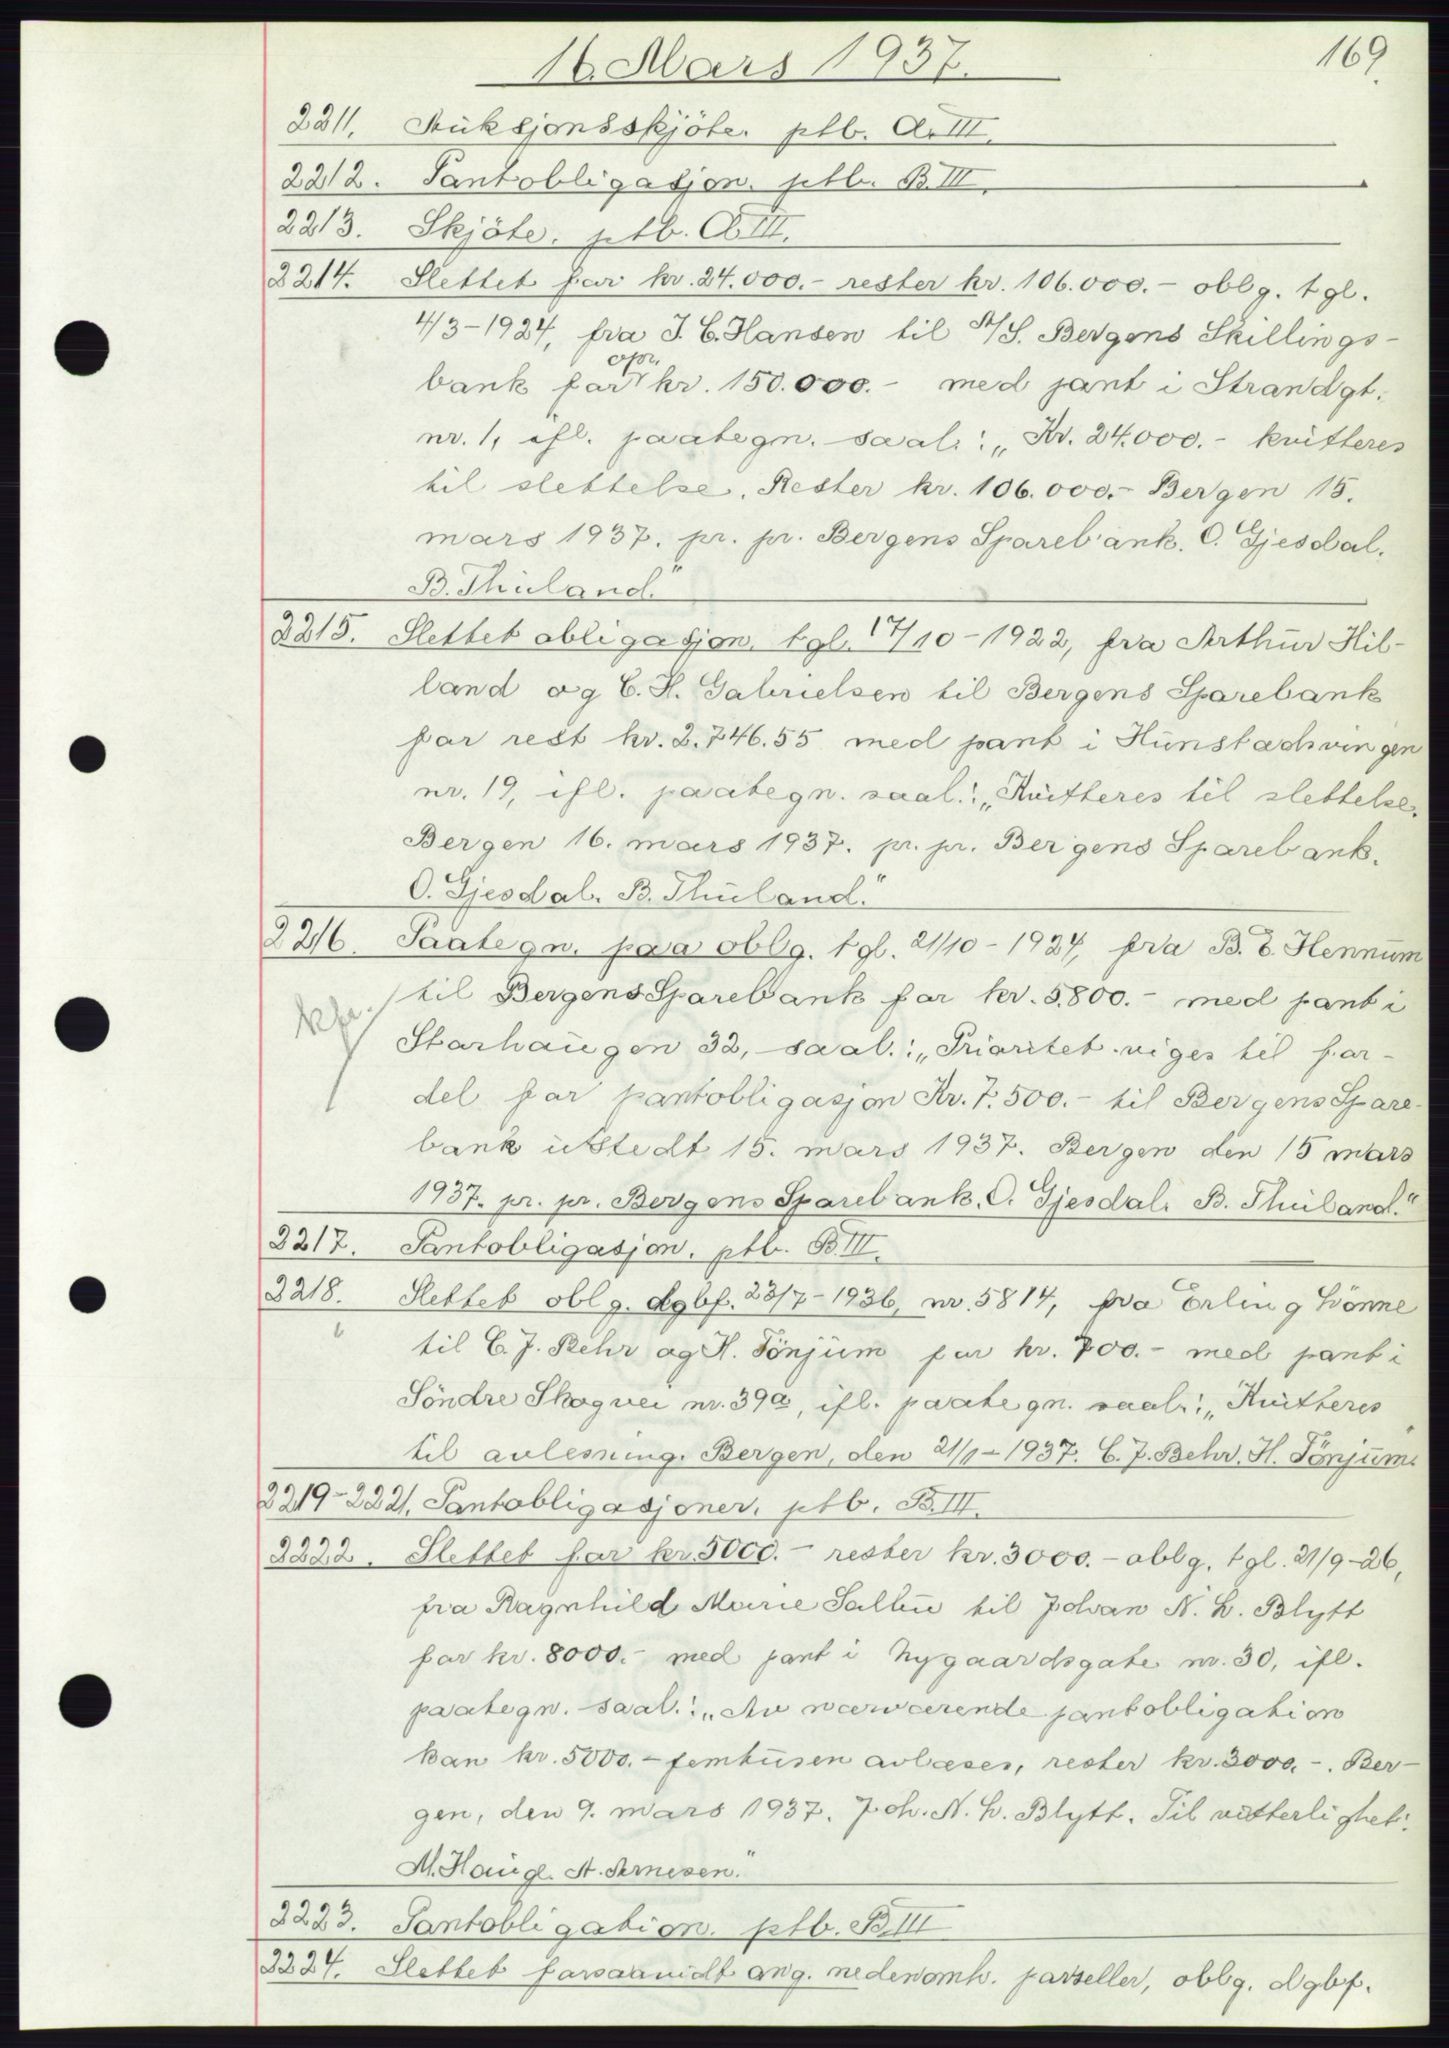 169.
16. Mars 1937.
2211. Auksjonsskjöte. ptb. A. III.
2212. Pantobligasjon. ptb. B. III.
2213. Skjöte. ptb. A III.
2214. Slettet for kr. 24.000.- rester kr. 106.000.- oblg. tgl.
4/3-1924, fra J. C. Hansen til A/S. Bergens Skillings-
bank for opr. kr. 150.000.- med pant i Strandgt.
nr. 1, ifl. paategn. saal.: „Kr. 24.000.- kvitteres
til slettelse. Rester kr. 106.000.- Bergen 15.
mars 1937. pr. pr. Bergens Sparebank. O. Gjesdal.
B. Thuland."
2215. Slettet obligasjon, tgl. 17/10-1922, fra Arthur Hil-
land og C. H. Gabrielsen til Bergens Sparebank
for rest kr. 2.746.55 med pant i Hunstadsvingen
nr. 19, ifl. paategn. saal.: „Kvitteres til slettelse.
Bergen 16. mars 1937. pr. pr. Bergens Sparebank.
O. Gjesdal. B. Thuland."
2216. Paategn. paa oblg. tgl. 21/10-1924, fra B. E. Hennum
til Bergens Sparebank for kr. 5.800.- med pant i
Starhaugen 32, saal.: „Prioritet viges til for-
del for pantobligasjon Kr. 7.500.- til Bergens Spare-
bank utstedt 15. mars 1937. Bergen den 15 mars
1937. pr. pr. Bergens Sparebank. O. Gjesdal. B. Thuland."
2217. Pantobligasjon. ptb. B III.
2218. Slettet oblg. dgbf. 23/7-1936, nr. 5814, fra Erling Lönne
til C. J. Behr og H. Tönjum for kr. 700.- med pant i
Söndre Skogvei nr. 39a, ifl. paategn. saal.: „Kvitteres
til avlesning. Bergen, den 21/1-1937. C. J. Behr. H. Tönjum."
2219-2221. Pantobligasjoner. ptb. B. III.
2222. Slettet for kr. 5000.- rester kr. 3000.- oblg. tgl. 21/9-26,
fra Ragnhild Marie Sallie til Johan N. L. Blytt
for kr. 8000.- med pant i Nygaardsgate nr. 30, ifl.
paategn. saal.: „Av nærværende pantobligation
kan kr. 5000.- femtusen avlæses, rester kr. 3000.-. Ber-
gen, den 9. mars 1937. Joh. N. L. Blytt. Til vitterlighet:
M. Haugl. A. Arnesen."
2223. Pantobligation. ptb. B III
2224. Slettet forsaavidt ang. nedenomh. parseller, oblg. dgbf.